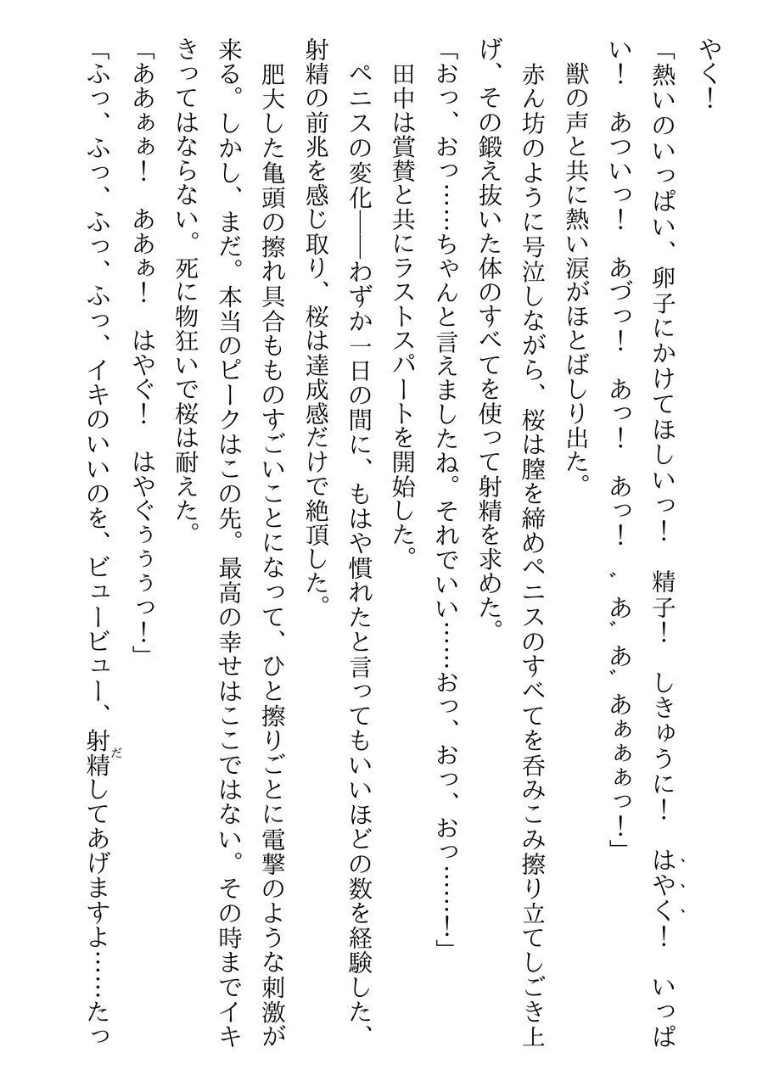 やく！
「熱いのいっぱい、卵子にかけてほしいっ！　精子！　しきゅうに！　はやく！　いっぱ
い！　あついっ！　あづっ！　あっ！　あっ！　゛あ゛あ゛あぁぁぁっ！」
獣の声と共に熱い涙がほとばしり出た。
赤ん坊のように号泣しながら、桜は膣を締めペニスのすべてを呑みこみ擦り立てしごき上
げ、その鍛え抜いた体のすべてを使って射精を求めた。
「おっ、おっ……ちゃんと言えましたね。それでいい……おっ、おっ、おっ……！」
田中は賞賛と共にラストスパートを開始した。
ペニスの変化――わずか一日の間に、もはや慣れたと言ってもいいほどの数を経験した、
射精の前兆を感じ取り、桜は達成感だけで絶頂した。
肥大した亀頭の擦れ具合もものすごいことになって、ひと擦りごとに電撃のような刺激が
来る。しかし、まだ。本当のピークはこの先。最高の幸せはここではない。その時までイキ
きってはならない。死に物狂いで桜は耐えた。
「ああぁぁ！　ああぁ！　はやぐ！　はやぐぅぅぅっ！」
「ふっ、ふっ、ふっ、ふっ、イキのいいのを、ビュービュー、射精してあげますよ……たっ
だ